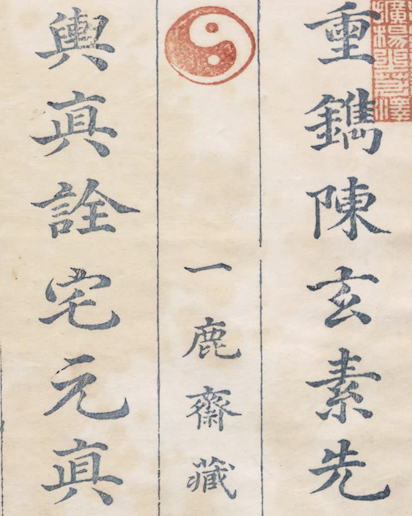 重鐫陳玄素先
一鹿齋藏
輿眞詮宅元眞